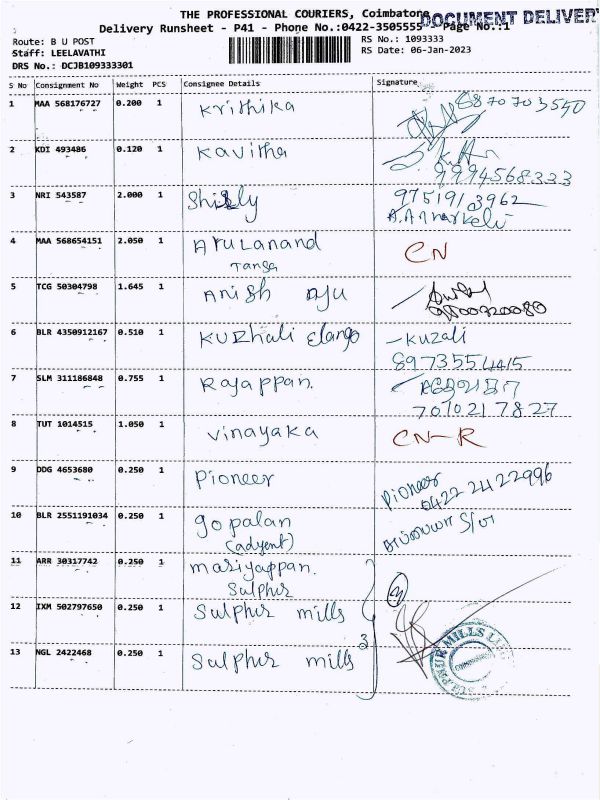 THE PROFESSIONAL COURIERS, Coimbatore
DOCUMENT DELIVERY
Delivery Runsheet - P41 - Phone No.:0422-3505555 Page No.:1
Route: B U POST
Staff: LEELAVATHI
DRS No.: DCJB109333301
RS No.: 1093333
RS Date: 06-Jan-2023
S No Consignment No Weight PCS Consignee Details Signature
1 MAA 568176727 0.200 1 Krithika 8870703540
2 KDI 493486 0.120 1 Kavitha
9994568333
3 NRI 543587 2.000 1 Shirly 9751913962
4 MAA 568654151 2.050 1 Arulanand CN
Tansa
5 TCG 50304798 1.645 1 Anish
9500320080
6 BLR 4350912167 0.510 1 Kuzhali Elango -Kuzali
8973554415
7 SLM 311186848 0.755 1 Rajappan.
7010217827
8 TUT 1014515 1.050 1 Vinayaka CN-R
9 DDG 4653680 0.250 1 Pioneer Pioneer
0422 2422996
10 BLR 2551191034 0.250 1 gopalan
(adyent)
11 ARR 30317742 0.250 1 mariyappan.
Sulphur
12 IXM 502797650 0.250 1 Sulphur mills
3
13 NGL 2422468 0.250 1 Sulphur mills